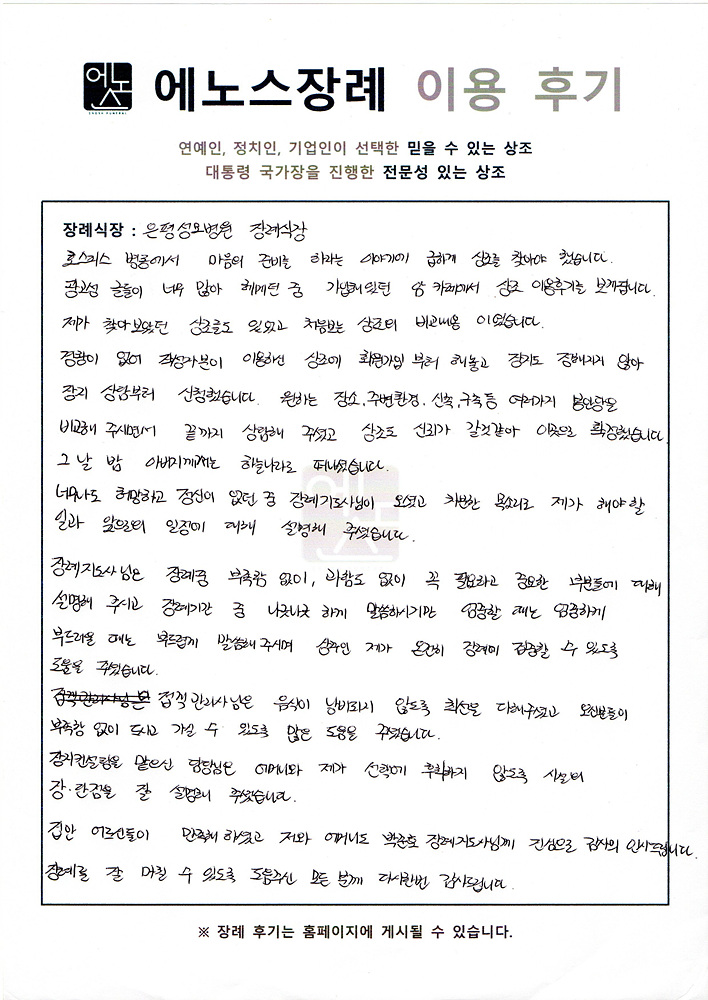 에노스 에노스장례 이용 후기
연예인, 정치인, 기업인이 선택한 믿을 수 있는 상조
대통령 국가장을 진행한 전문성 있는 상조
장례식장 : 은평성모병원 장례식장
호스피스 병동에서 마음의 준비를 하라는 이야기에 급하게 상조를 찾아야 했습니다.
광고성 글들이 너무 많아 헤메던 중 가입해있던 암 카페에서 상조 이용후기를 보게됩니다.
제가 찾아보았던 상조들도 있었고 처음보는 상조의 비교내용 이었습니다.
경황이 없어 작성자분이 이용하신 상조에 회원가입 부터 해놓고 장지도 정해지지 않아
장지 상담부터 신청했습니다. 원하는 장소, 주변환경, 신축, 구축 등 여러가지 봉안당을
비교해 주시면서 끝까지 상담해 주셨고 상조도 신뢰가 갈것같아 이곳으로 확정했습니다.
그 날 밤 아버지께서는 하늘나라로 떠나셨습니다.
너무나도 허망하고 정신이 없던 중 장례지도사님이 오셨고 차분한 목소리로 제가 해야할
일과 앞으로의 일정에 대해 설명해 주셨습니다.
장례지도사님은 장례중 부족함 없이, 과함도 없이 꼭 필요하고 중요한 부분들에 대해
설명해 주시고 장례기간 중 나긋나긋 하게 말씀하시지만 엄중할 때는 엄중하게
부드러울 때는 부드럽게 말씀해주시며 상주인 제가 온전히 장례에 집중할 수 있도록
도움을 주셨습니다.
접객관리사님은 접객관리사님은 음식이 낭비되지 않도록 최선을 다해주셨고 오신분들이
부족함 없이 드시고 가실 수 있도록 많은 도움을 주셨습니다.
장지컨설팅을 맡으신 담당님은 어머니와 제가 선택에 후회하지 않도록 시설의
장·단점을 잘 설명해 주셨습니다.
집안 어르신들이 만족해 하셨고 저와 어머니도 박준호 장례지도사님께 진심으로 감사의 인사드립니다.
장례를 잘 마칠 수 있도록 도움주신 모든 분께 다시한번 감사드립니다.
※ 장례 후기는 홈페이지에 게시될 수 있습니다.